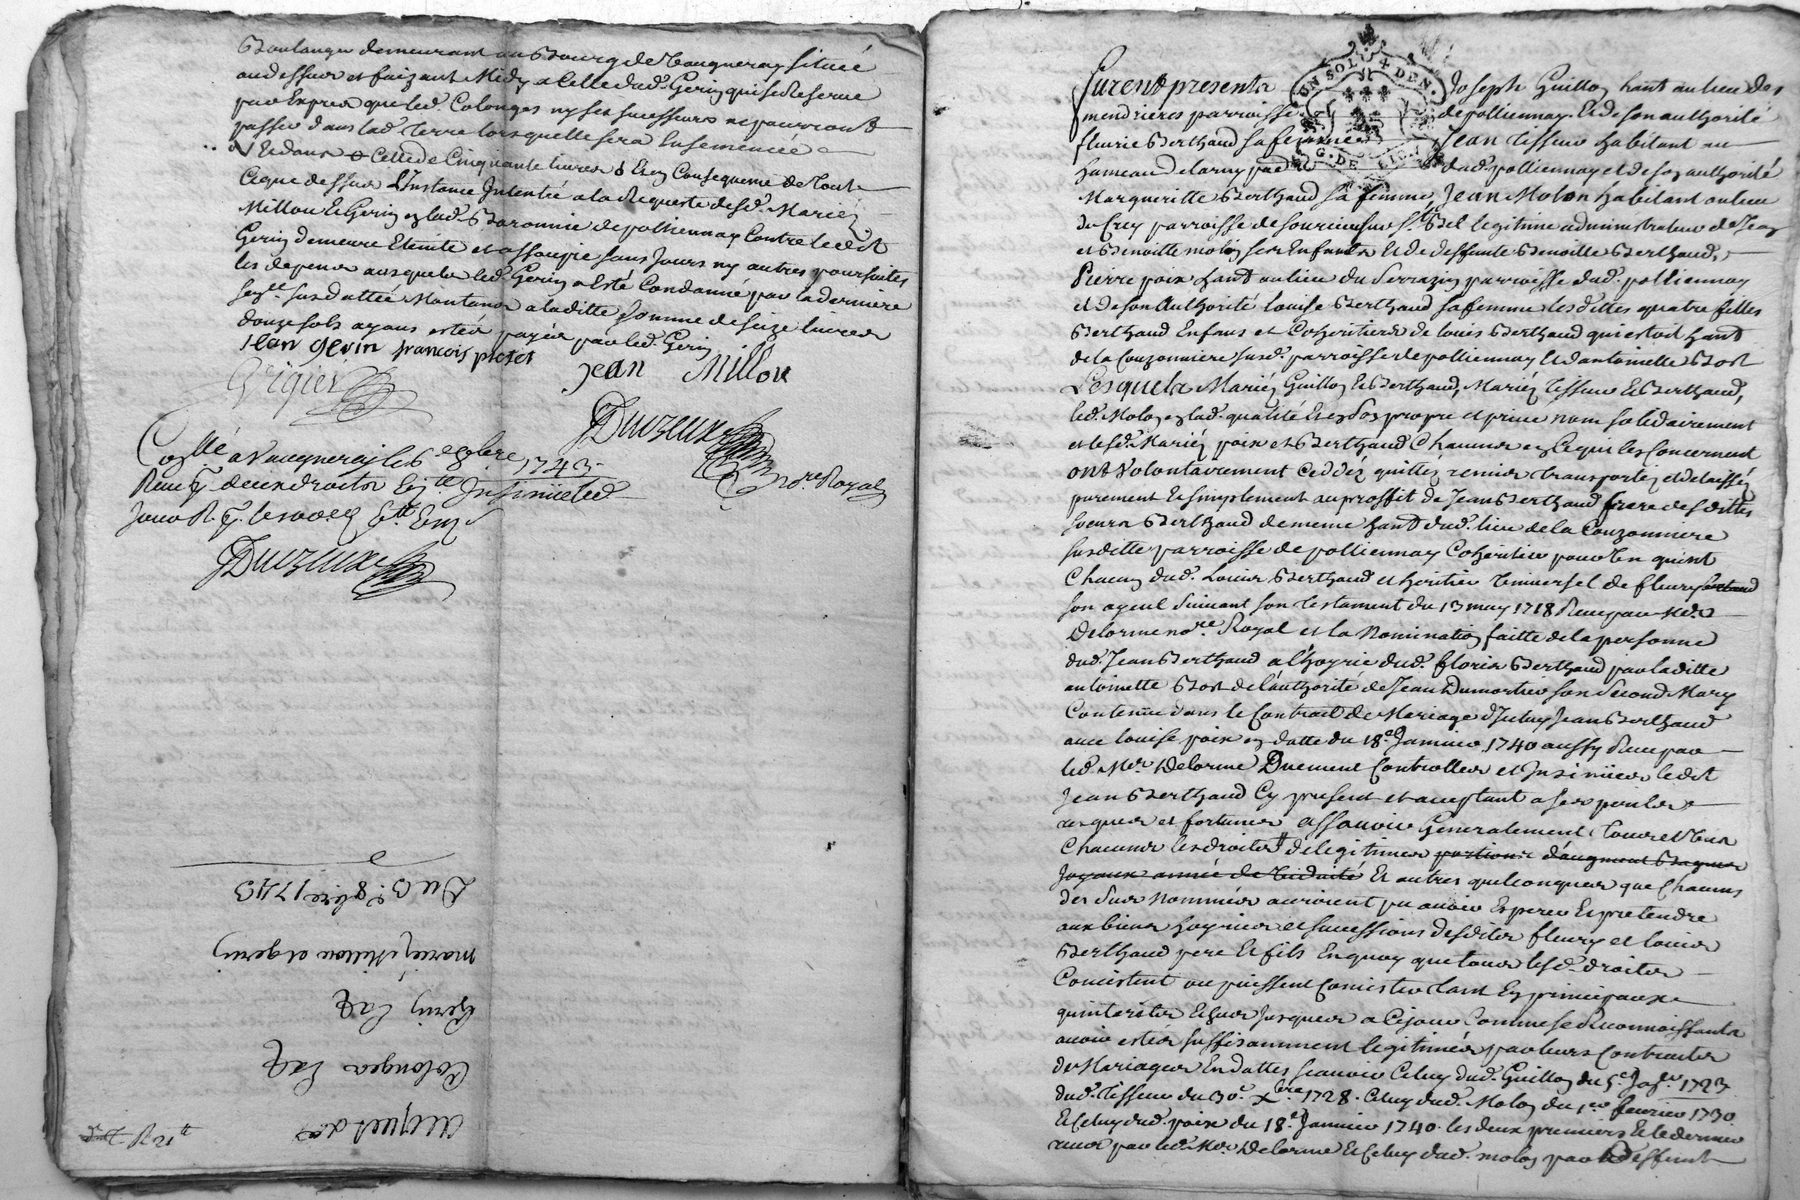 Boulanger demeurant au Bourg de Vaugneray située
au dessus et faizant Midy a Celle dud. Gerin qui se Reserve
par Exprès que led. Colonges ny ses successeurs ne pourront
passer dans lad. Terre lorsquelle sera Ensemencée
Cellede Cinquante livres Et en Consequence de Tout
Ceque dessus L'Instance Intentée a la Requeste desd. Mariez
Millou et Gerin en lad. Baronnie de polliennay Contre ledit
Gerin demeure Eteinte et assoupie sans Jours ny autres poursuites
les depens ausquels led. Gerin a Esté Condanné par la derniere
susdattée Montans a laditte somme de seize livres
douze sols ayans estés payés par led. Gerin
jean gerin francois
jean Millou
Duvzeux
Collé a Vaugneray le 6 8bre 1743
Duvzeux
nore Royal
Du 3 8bre 1743
mariez Millou et gerin
Gerin
Colonges
acquets des
UN SOL 4 DEN.
G. DE LION
Furent presents Joseph Guillon hant au lieu des
mendrieres parroisse de pollienay Et de son authorité
fleurie Berthaud sa femme Jean Tisseur habitant au
hameau de dud. pollienay et de son authorité
Margueritte Berthaud sa femme, Jean Molon habitant au lieu
du Crey parroisse de legitime administrateur de Jean
et Benoitte molon ses Enfants Et de deffunte Benoitte Berthaud,
Pierre poix hant au lieu du Serrazin parroisse dud. pollienay
et de son Authorité louise Berthaud sa femme lesdittes quatre filles
Berthaud Enfans et Coheritiers de louis Berthaud qui estoit hant
de la Couzonniere susd. parroisse de pollienay Et dantoinette Bost
Lesquels Mariez Guillon et Berthaud, Mariez Tisseur et Berthaud,
led. Molon en lad. qualité Et en son propre et privé nom solidairement
et lesd. Mariez poix et Berthaud Chacuns en Ce qui les Concernent
ont Volontairement Ceddéz quittez remis Transportéz et delaisséz
purement et simplement au proffit de Jean Berthaud frere desdittes
soeurs Berthaud de meme hant dud. lieu de la Couzonniere
susditte parroisse de pollienay Coheritier pour un quint
Chacun dud. Louis Berthaud et heritier Universel de fleury Berthaud
son ayeul Suivant son Testament du 13 may 1718 Reçu par Me
Delorme nore Royal et la Nomination faitte de la personne
dud. Jean Berthaud a l'hoyrie dud. fleury Berthaud par laditte
antoinette Bost de l'authorité de Jean Dumortier son Second Mary
Contenüe dans le Contract de Mariage d'Iceluy Jean Berthaud
avec louise poix en datte du 18e Janvier 1740 aussy Reçu par
led. Me Delorme Duement Controllés et Insinués ledit
Jean Berthaud Cy present et acceptant a ses perils
risques et fortunes assavoir Generalement Tous et Uns
Chacuns les droits de legitimes portions d'augment Bagues
Joyaux année de Viduité Et autres quelconques que Chacuns
des Sus Nommés auroient pu avoir Esperer Et pretendre
aux biens hoyries et successions desdits fleury et louis
Berthaud pere Et fils En quoy que tous lesd. droits
Consistent ou puissent Consister tant En principaux
quinterests Echus Jusques a Cejour Comme se Reconnoissants
avoir estés suffisamment legitimés par leurs Contracts
de Mariages En dattes scavoir Celuy dud. Guillon du 5e 1723
dud. Tisseur du 30e Xbre 1728. Celuy dud. Molon du 1er fevrier 1730
Et Celuy dud. poix du 18e Janvier 1740. les deux premiers Et le dernier
recus par led. Me Delorme Et Celuy dud. molon par deffunt